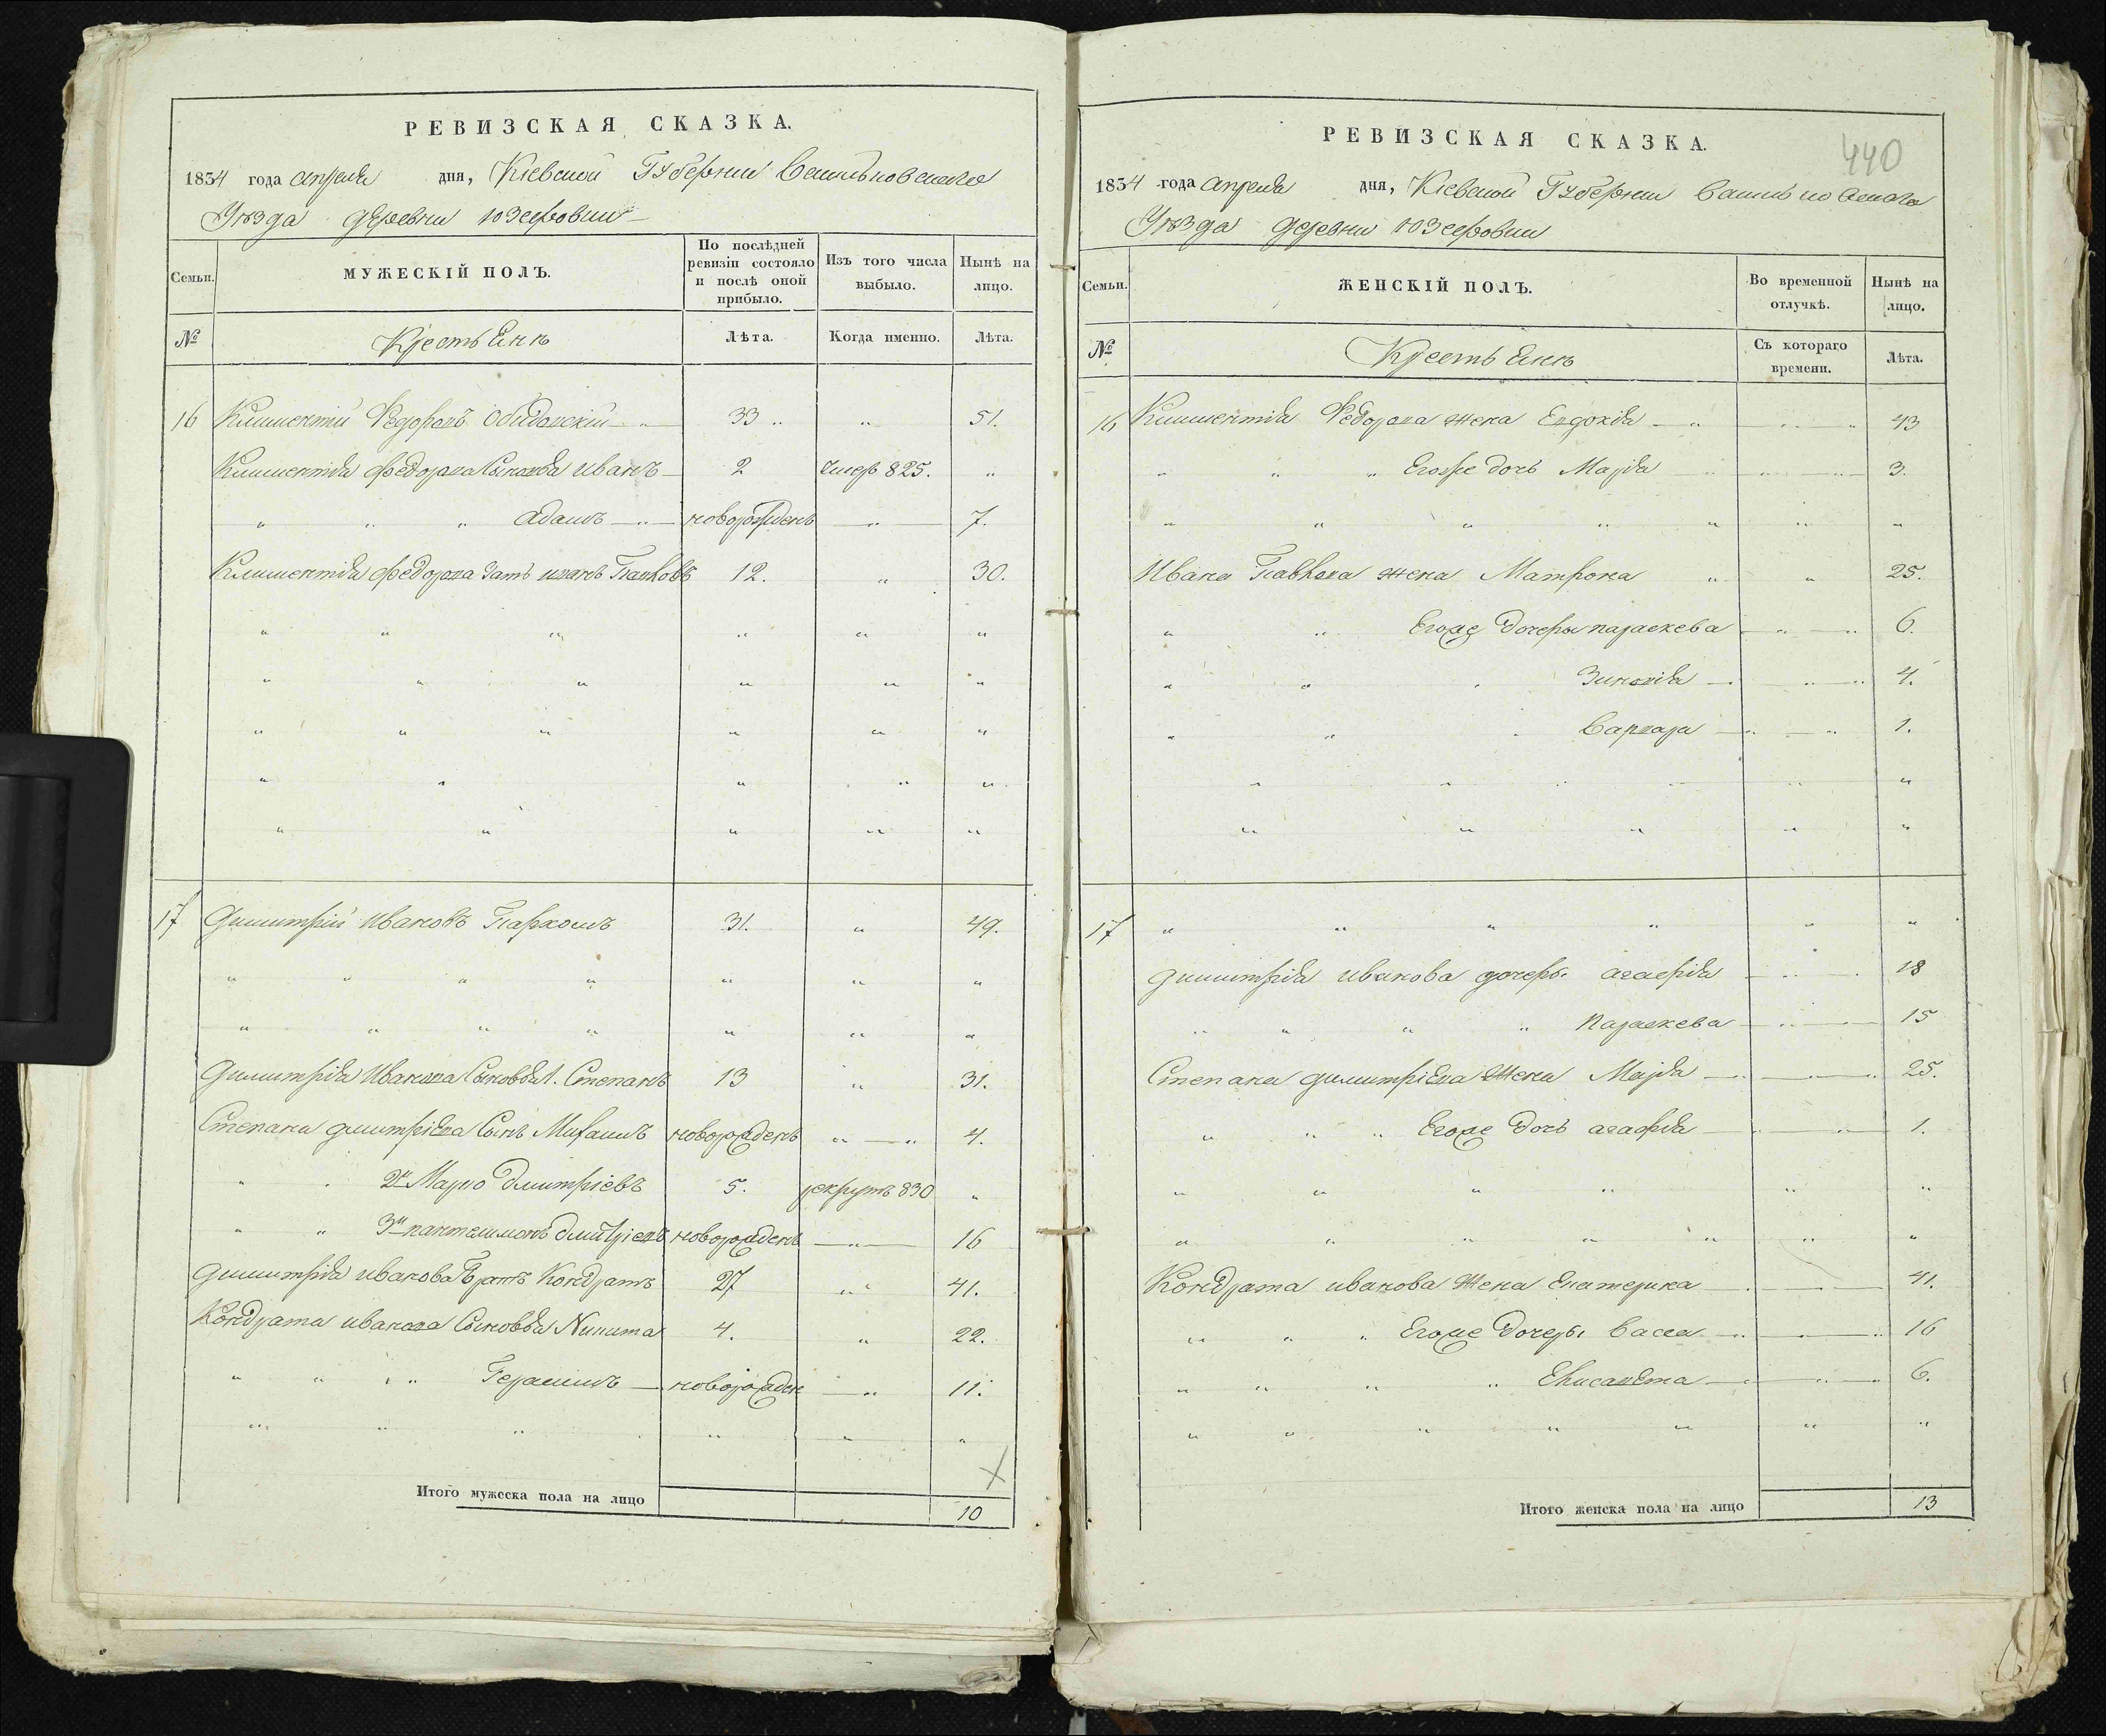 РЕВИЗСКАЯ СКАЗКА.
1834 года апреля дня, Кіевской Губерніи Васильковскаго
Уѣзда деревни Юзефовки
Семьи.
МУЖЕСКІЙ ПОЛЪ.
По послѣдней ревизіи состояло и послѣ оной прибыло.
Изъ того числа выбыло.
Нынѣ на лицо.
№
Крестьянъ
Лѣта.
Когда именно.
Лѣта.
16 Климентій Федоровъ 33 " 51.
Климентія Федорова Сыновья Иванъ 2 Умеръ 825. "
" " " Адамъ новорожденъ " 7.
Климентія Федорова Зять иванъ Павловъ 12. " 30.
17 Димитрій Ивановъ Пархомъ 31. " 49.
Димитрія Иванова Сыновья 1. Степанъ 13 " 31.
Степана димитріева Сынъ Михаилъ новорожденъ " 4.
2й Марко Дмитріевъ 5. рекрутъ 830 "
3й пантелимонъ дмитріевъ новорожденъ " 16
Димитрія иванова Братъ Кондратъ 27 " 41.
Кондрата иванова Сыновья Никита 4. " 22.
" " " Герасимъ новорожден " 11.
Итого мужеска пола на лицо 10
440
РЕВИЗСКАЯ СКАЗКА.
1834 года апреля дня, Кіевской Губерніи Васильковскаго
Уѣзда деревни Юзефовки
Семьи.
ЖЕНСКІЙ ПОЛЪ.
Во временной отлучкѣ.
Нынѣ на лицо.
№
Крестьянъ
Съ котораго времени.
Лѣта.
16 Климентія Федорова жена Евдокія " 43
" " " Егоже дочь Марія " 3.
Ивана Павлова жена Матрона " " 25.
" " Егоже дочеры параскева " 6.
Зиновія " 4.
Варвара " 1.
17 " " " " " "
димитрія иванова дочеры агафія " 18
" " " " параскева " 15
Степана димитріева Жена Марія " 25.
" " " Егоже дочь агафія " 1.
Кондрата иванова Жена Екатерина 41.
" " " Егоже дочеры Васса " 16
" " " " Елисавета " 6.
Итого женска пола на лицо 13